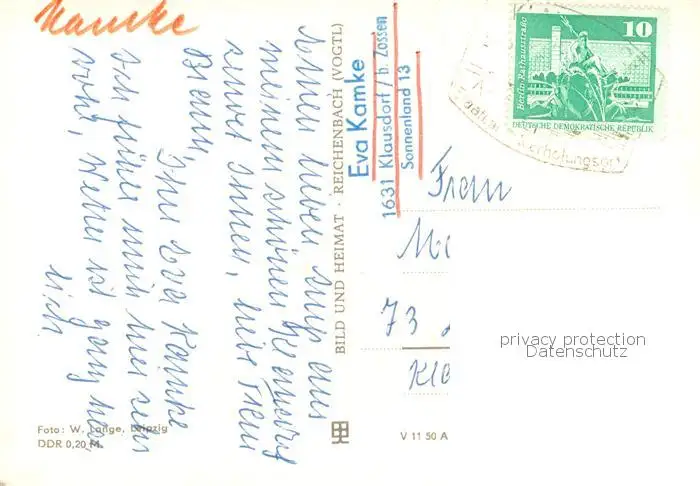 Kamke
Einen lieben Gruß aus
meinem schönen Kurort
sendet Ihnen, liebe Frau
Ihre Eva Kamke
Ich fühle mich hier sehr
wohl, Wetter ist ganz herr-
lich
BILD UND HEIMAT · REICHENBACH (VOGTL)
Eva Kamke
1631 Klausdorf / b. Zossen
Sonnenland 13
10
Berlin-Rathausstraße
DEUTSCHE DEMOKRATISCHE REPUBLIK
Erholungsort
Frau
73
privacy protection
Datenschutz
Foto: W. Lange, Leipzig
DDR 0,20 M.
V 11 50 A